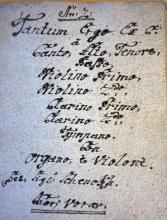 Tantum Ergo
à
Canto, Alto, Tenore,
Basso,
Violino Primo,
Violino 2do.
Clarino Primo,
Clarino 2do.
Tympano,
Con
Organo, e Violone.